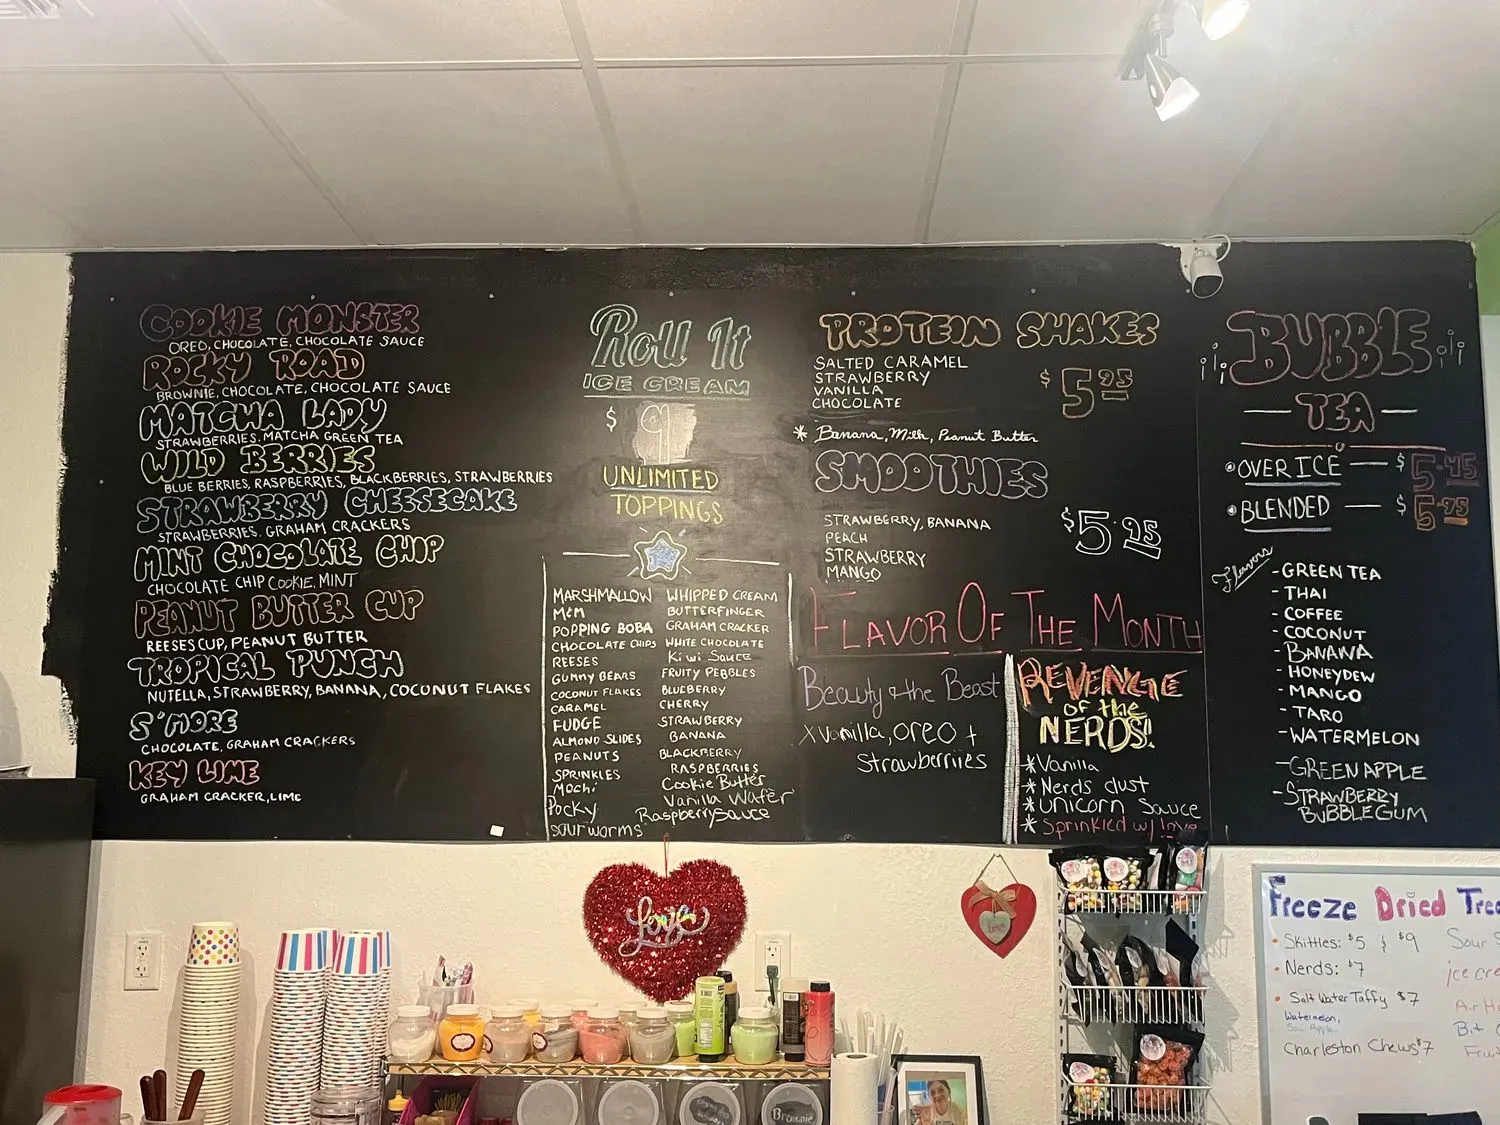 COOKIE MONSTER
OREO, CHOCOLATE, CHOCOLATE SAUCE
ROCKY ROAD
BROWNIE, CHOCOLATE, CHOCOLATE SAUCE
MATCHA LADY
STRAWBERRIES, MATCHA GREEN TEA
WILD BERRIES
BLUE BERRIES, RASPBERRIES, BLACKBERRIES, STRAWBERRIES
STRAWBERRY CHEESECAKE
STRAWBERRIES, GRAHAM CRACKERS
MINT CHOCOLATE CHIP
CHOCOLATE CHIP COOKIE, MINT
PEANUT BUTTER CUP
REESES CUP, PEANUT BUTTER
TROPICAL PUNCH
NUTELLA, STRAWBERRY, BANANA, COCONUT FLAKES
S'MORE
CHOCOLATE, GRAHAM CRACKERS
KEY LIME
GRAHAM CRACKER, LIME
Roll It
ICE CREAM
$ 9
UNLIMITED
TOPPINGS
MARSHMALLOW
M&M
POPPING BOBA
CHOCOLATE CHIPS
REESES
GUMMY BEARS
COCONUT FLAKES
CARAMEL
FUDGE
ALMOND SLIDES
PEANUTS
SPRINKLES
Mochi
Pocky
sour worms
WHIPPED CREAM
BUTTERFINGER
GRAHAM CRACKER
WHITE CHOCOLATE
Kiwi Sauce
FRUITY PEBBLES
BLUEBERRY
CHERRY
STRAWBERRY
BANANA
BLACKBERRY
RASPBERRIES
Cookie Butter
Vanilla Wafer
Raspberry sauce
PROTEIN SHAKES
SALTED CARAMEL
STRAWBERRY
VANILLA
CHOCOLATE
$5.95
* Banana, Milk, Peanut Butter
SMOOTHIES
STRAWBERRY, BANANA
PEACH
STRAWBERRY
MANGO
$5.95
FLAVOR OF THE MONTH
Beauty & the Beast
x vanilla, oreo +
strawberriies
REVENGE
of the
NERDS!
* Vanilla
* Nerds dust
* Unicorn Sauce
* Sprinkled w/ love
BUBBLE
TEA
• OVER ICE — $5.45
• BLENDED — $5.95
Flavors
- GREEN TEA
- THAI
- COFFEE
- COCONUT
- BANANA
- HONEYDEW
- MANGO
- TARO
- WATERMELON
- GREEN APPLE
- STRAWBERRY
BUBBLEGUM
Love
Brownie
Freeze Dried
• Skittles: $5 & $9
• Nerds: $7
• Salt Water Taffy $7
Watermelon,
Charleston Chews $7
Sour
ice